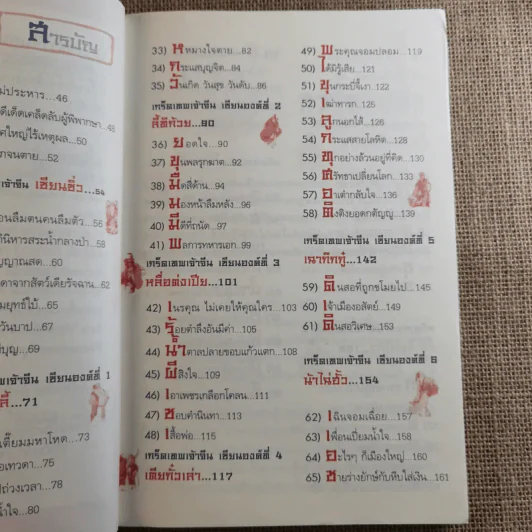 สารบัญ
ประหาร...46
ตีเด็ดเคล็ดลับผู้พิพากษา...48
ใหญ่ไร้เหตุผล...50
จนตาย...52
เซียนฮิ่ว...54
ลืมตนคนลืมตัว...56
นิหารสระน้ำกลางป่า...58
ญญาณสด...60
ดาจากสัตว์เดียรัจฉาน...62
มยุทธ์ไป๋...63
วันบาป...67
บุญ...69
เทพเจ้าจีน เซียนองค์ที่ 1
...71
เตี๊ยมมหาโหด...73
อเทวดา...75
ปถ่วงเวลา...78
น้ำใจ...80
33) หหมางใจตาย...82
34) กระแสบุญจิต...84
35) วันเกิด วันสุข วันดับ...86
เกร็ดเทพเจ้าจีน เซียนองค์ที่ 2
ลี้ทิก๋วย...90
36) ยอดใจ...90
37) ขุนพลรุกฆาต...92
38) มืดสี่ด้าน...94
39) มองหน้าลืมหลัง...96
40) มีดีที่ถนัด...97
41) พลการทหารเอก...99
เกร็ดเทพเจ้าจีน เซียนองค์ที่ 3
หลื่อต่งเปีย...101
42) เนรคุณ ไม่เคยให้คุณใคร...103
43) ร้อยตำลึงอันมีค่า...105
44) น้ำตาลปลายขอบแก้วแตก...108
45) ผีสิงใจ...109
46) เอาเพชรเกลือกโคลน...111
47) ชอบตำนินทา...113
48) เสื้อพ่อ...115
เกร็ดเทพเจ้าจีน เซียนองค์ที่ 4
เตียก๊วเล่า...117
49) พระคุณจอมปลอม...119
50) ได้มิรู้เสีย...121
51) ขุนกระบี่จี้เงา...122
52) เฒ่าทารก...123
53) ลูกนอกไส้...125
54) กระแสสายโลหิต...128
55) ทุกอย่างล้วนอยู่ที่คิด...130
56) ศรัทธาเปลี่ยนโลก...133
57) อาเต๋ากลับใจ...136
58) ติ่งติงยอดกตัญญู...139
เกร็ดเทพเจ้าจีน เซียนองค์ที่ 5
เฉาก๊กกู๋...142
59) ดินสอที่ถูกขโมยไป...145
60) เจ้าเมืองอสัตย์...149
61) ดินสอวิเศษ...153
เกร็ดเทพเจ้าจีน เซียนองค์ที่ 6
น้าไฉ่ฮั้ว...154
62) เฉินจอมเฉื่อย...157
63) เพื่อนเปี่ยมน้ำใจ...158
64) อะไรๆ ก็เมืองใหญ่...160
65) ชายร่างยักษ์กับหีบใส่เงิน...161